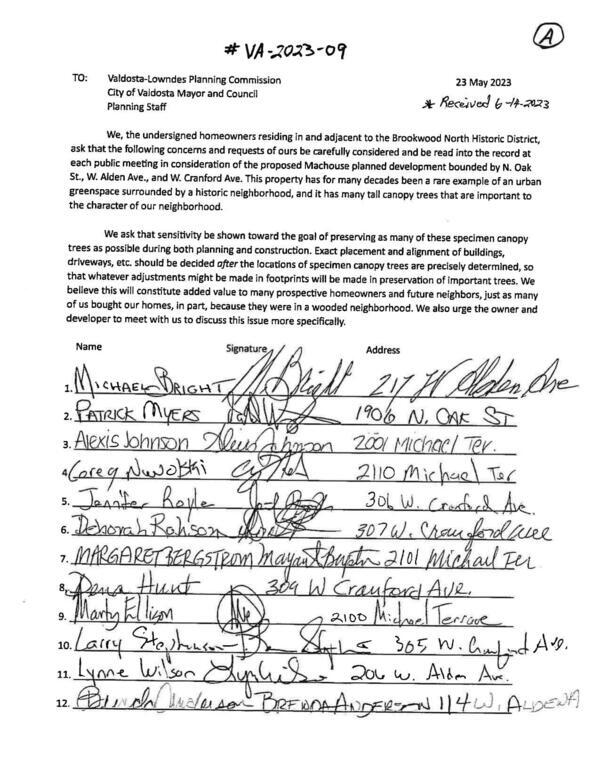 A
# VA-2023-09
TO: Valdosta-Lowndes Planning Commission
City of Valdosta Mayor and Council
Planning Staff
23 May 2023
* Received 6-14-2023
We, the undersigned homeowners residing in and adjacent to the Brookwood North Historic District,
ask that the following concerns and requests of ours be carefully considered and be read into the record at
each public meeting in consideration of the proposed Machouse planned development bounded by N. Oak
St., W. Alden Ave., and W. Cranford Ave. This property has for many decades been a rare example of an urban
greenspace surrounded by a historic neighborhood, and it has many tall canopy trees that are important to
the character of our neighborhood.
We ask that sensitivity be shown toward the goal of preserving as many of these specimen canopy
trees as possible during both planning and construction. Exact placement and alignment of buildings,
driveways, etc. should be decided after the locations of specimen canopy trees are precisely determined, so
that whatever adjustments might be made in footprints will be made in preservation of important trees. We
believe this will constitute added value to many prospective homeowners and future neighbors, just as many
of us bought our homes, in part, because they were in a wooded neighborhood. We also urge the owner and
developer to meet with us to discuss this issue more specifically.
Name Signature Address
1. MICHAEL BRIGHT M Bright 217 W Alden Ave
2. PATRICK MYERS 1906 N. OAK ST
3. Alexis Johnson Alexis Johnson 2001 Michael Ter.
4. Greg 2110 Michael Ter
5. Jennifer Royle 306 W. Cranford Ave.
6. Deborah Robson 307 W. Cranford Ave
7. MARGARET BERGSTROM 2101 Michael Ter
8. Dena Hunt 309 W Cranford AVE.
9. Marty Ellison 2100 Michael Terrace
10. Larry Stephenson 305 W. Cranford Ave.
11. Lynne Wilson 206 W. Alden Ave.
12. Brenda Anderson BRENDA ANDERSON 114 W. ALDEN A